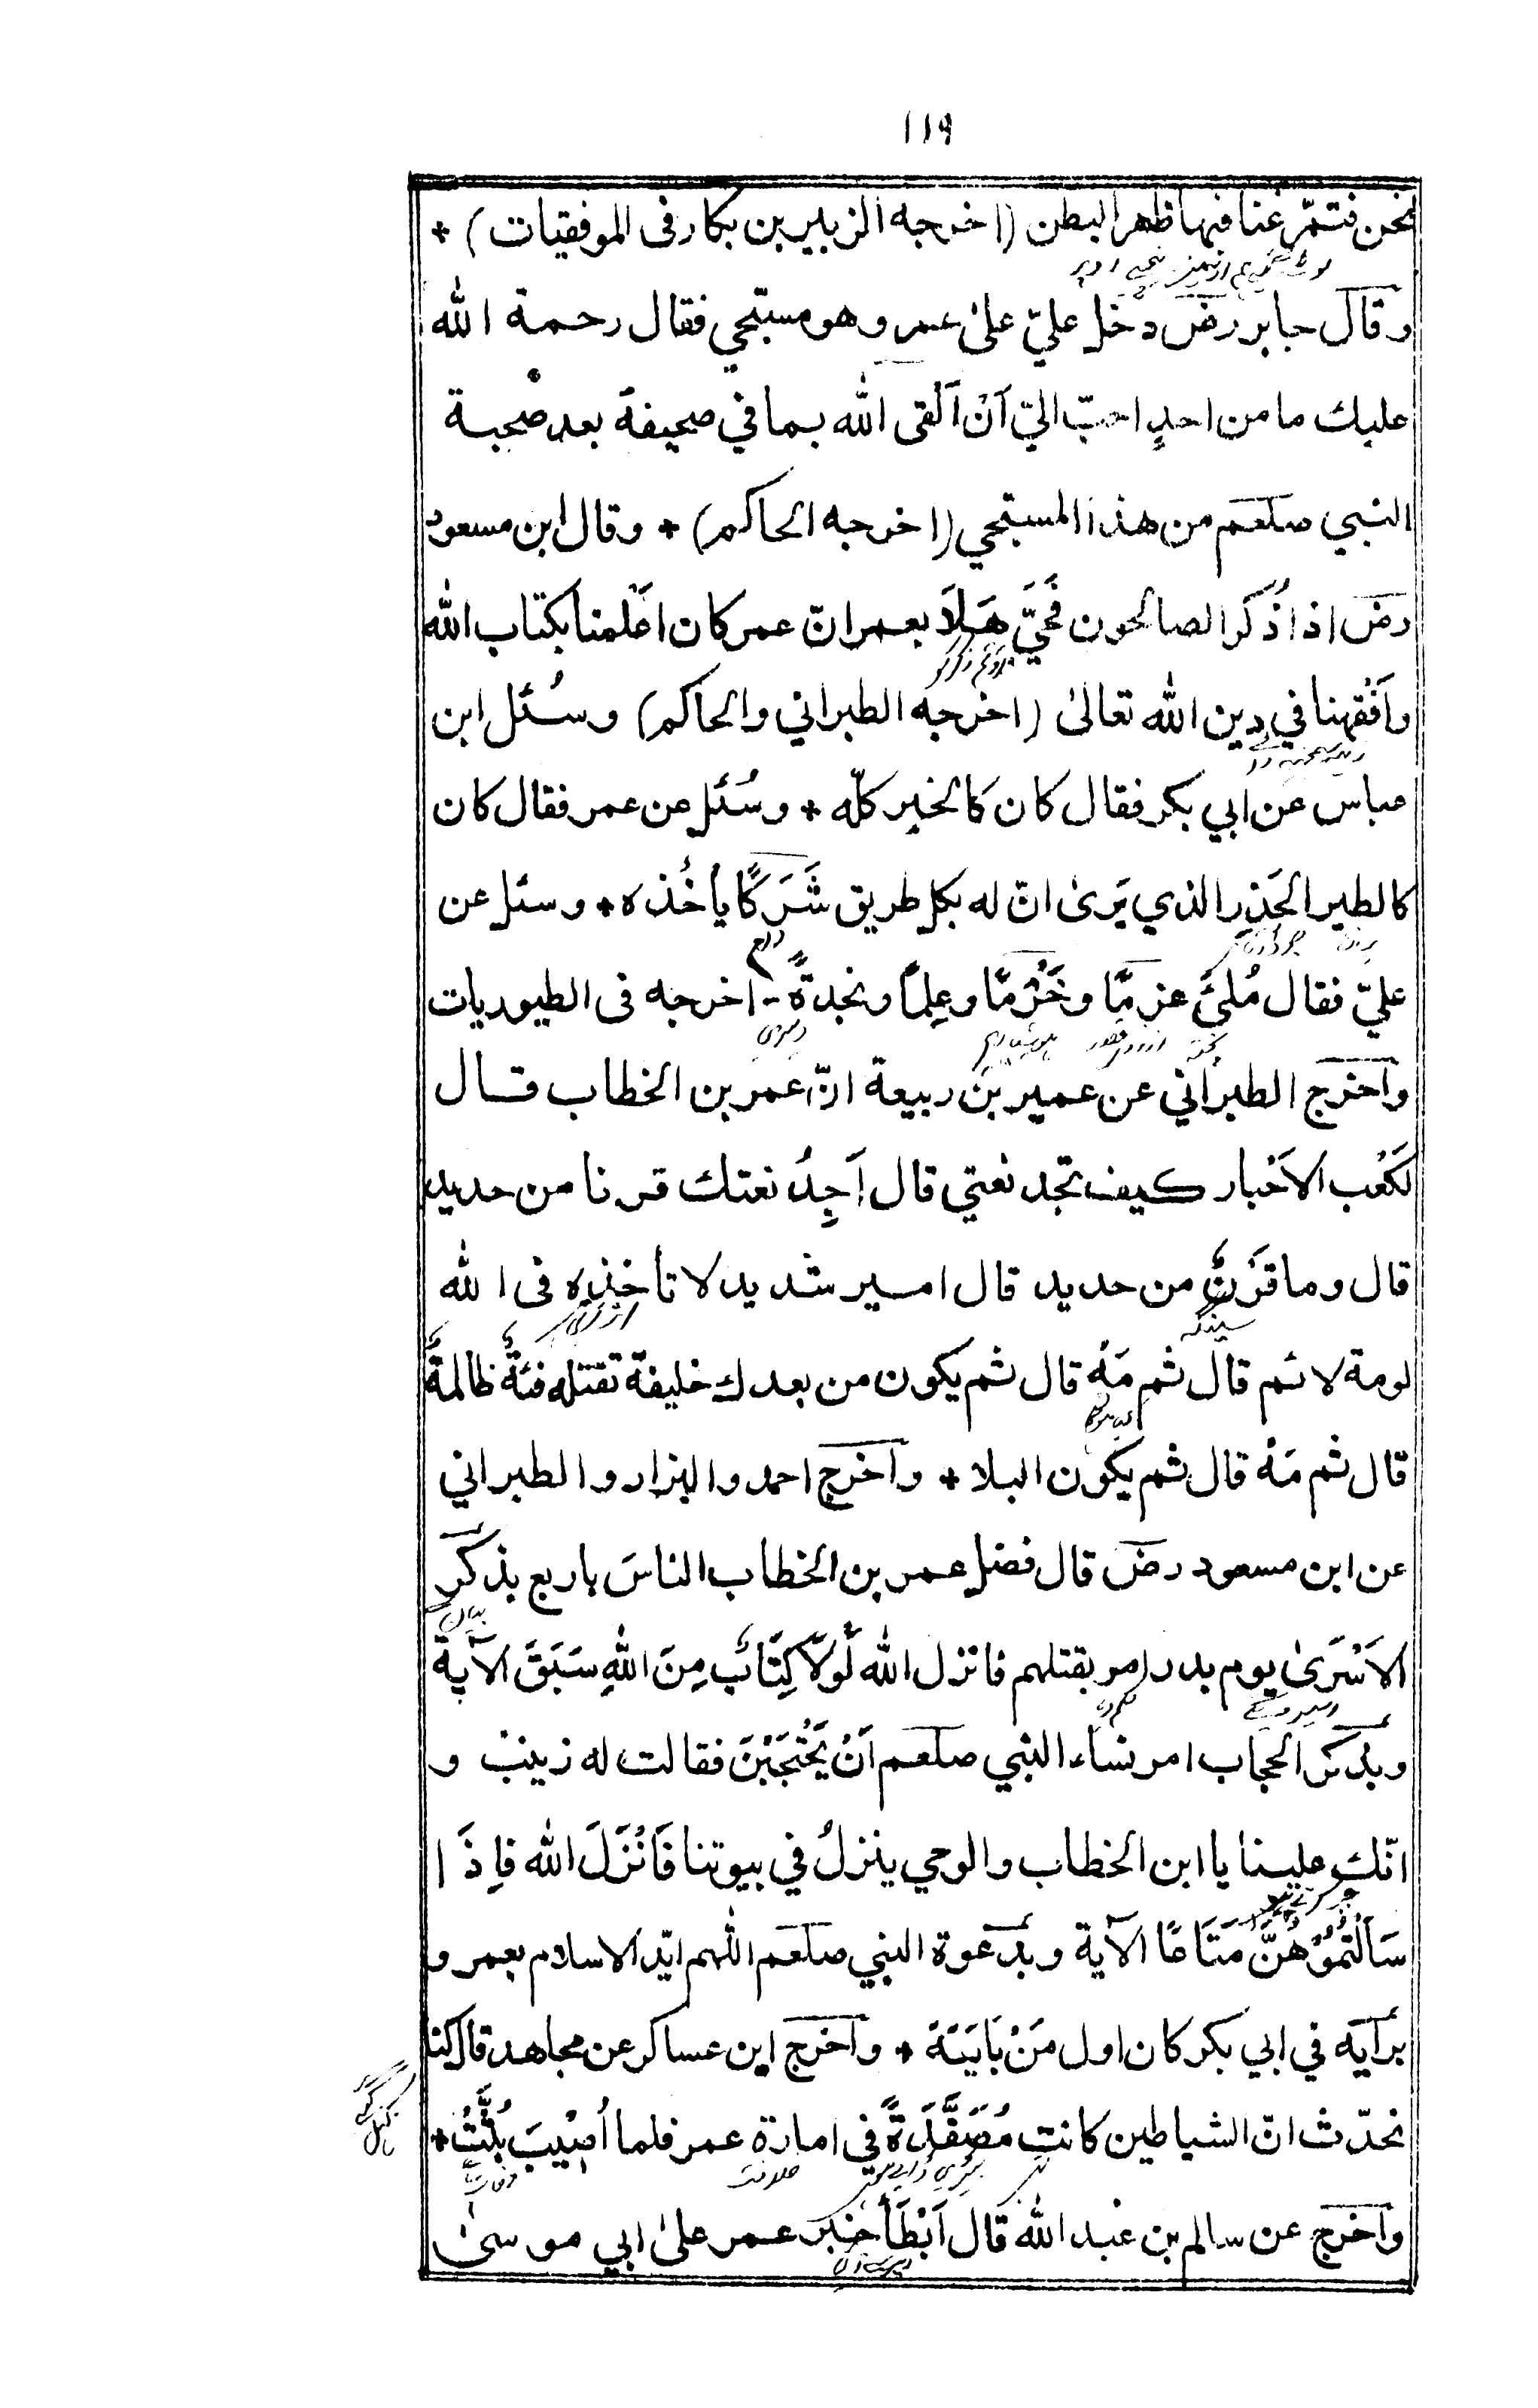 ١١٩
نحن فتمرّغنا فيها ظهرا لبطن (اخرجه الزبير بن بكار فى الموفقيات) *
وقال جابر رضـ دخل عليّ علىٰ عمر وهو مسبّجي فقال رحمة الله
عليك ما من احدٍ احبّ اليّ اَنْ اَلْقى الله بما في صحيفة بعد صُحبة
النبي صلعم من هذا المسبّجي (اخرجه الحاكم) * وقال ابن مسعود
رضـ اذا ذُكر الصالحون فَحَيَّ هَلَا بعمر انّ عمر كان اَعْلمنا بكتاب الله
واَفْقهنا في دين الله تعالىٰ (اخرجه الطبراني والحاكم) وسُئل ابن
عباس عن ابي بكر فقال كان كالخير كلّه * وسُئل عن عمر فقال كان
كالطير الحَذِر الذي يَرىٰ انّ له بكل طريق شَرَكًا يأخُذه * وسئل عن
عليّ فقال مُلِئَ عزمًا وحَزْمًا وعِلمًا ونجدةً - اخرجه فى الطيوريات
واخرج الطبراني عن عمير بن ربيعة انّ عمر بن الخطاب قال
لكَعْب الاَحْبار كيف تجد نعتي قال اَجِدُ نعتك قرنا من حديد
قال وما قَرْنٌ من حديد قال امير شديد لا تأخذه فى الله
لومة لائم قال ثم مَهْ قال ثم يكون من بعدك خليفة تقتله فئةٌ ظالمةٌ
قال ثم مَهْ قال ثم يكون البلا * واخرج احمد والبزار والطبراني
عن ابن مسعود رضـ قال فضل عمر بن الخطاب الناسَ باربع بذكر
الاَسْرىٰ يوم بدر امر بقتلهم فانزل الله لَوْلَا كِتَابٌ مِنَ اللهِ سَبَقَ الآية
وبذكر الحجاب امر نساء النبي صلعم اَنْ يَحْتَجِبْنَ فقالت له زينب و
انّك علينا يا ابن الخطاب والوحي ينزلُ في بيوتنا فَاَنْزَلَ الله فاِذَا
سَاَلْتُمُوْهُنَّ مَتَاعًا الآية وبدعوة النبي صلعم اللهم ايّد الاسلام بعمر و
برأيه في ابي بكر كان اول مَنْ بَايَعَهٗ * واخرج ابن عساكر عن مجاهد قال كنا
نحدّث انّ الشياطين كانت مُصَفَّدَةً في امارة عمر فلما اُصِيْبَ بُثَّتْ *
واخرج عن سالم بن عبد الله قال اَبْطَأَ خبر عمر علىٰ ابي موسىٰ